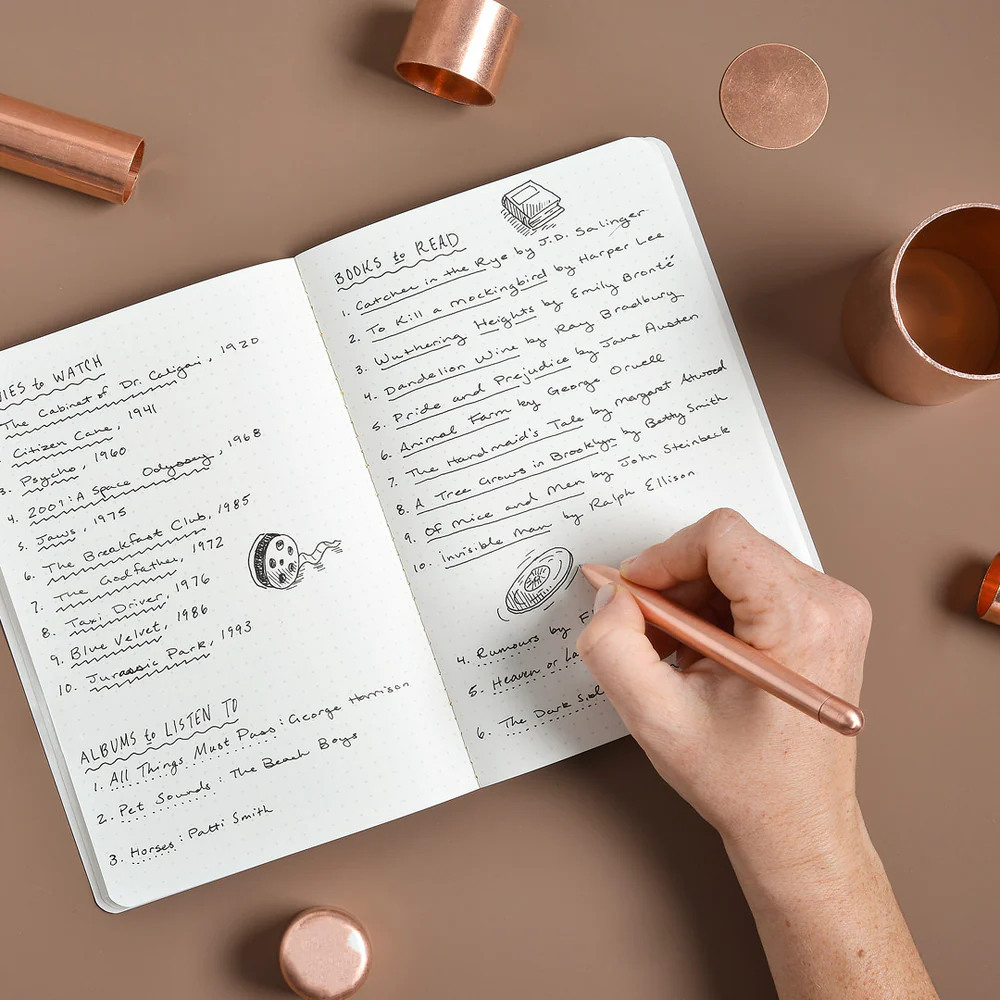 IES to WATCH
The Cabinet of Dr. Caligari, 1920
Citizen Cane, 1941
3. Psycho, 1960
4. 2001: A Space Odyssey, 1968
5. Jaws, 1975
6. The Breakfast Club, 1985
7. The Godfather, 1972
8. Taxi Driver, 1976
9. Blue Velvet, 1986
10. Jurassic Park, 1993
ALBUMS to LISTEN TO
1. All Things Must Pass: George Harrison
2. Pet Sounds: The Beach Boys
3. Horses: Patti Smith
BOOKS to READ
1. Catcher in the Rye by J.D. Salinger
2. To Kill a Mockingbird by Harper Lee
3. Wuthering Heights by Emily Brontë
4. Dandelion Wine by Ray Bradbury
5. Pride and Prejudice by Jane Austen
6. Animal Farm by George Orwell
7. The Handmaid's Tale by Margaret Atwood
8. A Tree Grows in Brooklyn by Betty Smith
9. Of Mice and Men by John Steinbeck
10. Invisible Man by Ralph Ellison
4. Rumours by F
5. Heaven or La
6. The Dark Sid